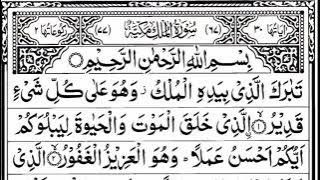 اٰیاتها ٣٠ (٦٧) سُوْرَةُ الْمُلْكِ مَكِّيَّةٌ (٧٧) رکوعاتها ٢
بِسْمِ اللّٰهِ الرَّحْمٰنِ الرَّحِيْمِ
تَبٰرَكَ الَّذِيْ بِيَدِهِ الْمُلْكُ ز وَهُوَ عَلٰى كُلِّ شَيْءٍ
قَدِيْرُ ۨ ۝١ الَّذِيْ خَلَقَ الْمَوْتَ وَالْحَيٰوةَ لِيَبْلُوَكُمْ
اَيُّكُمْ اَحْسَنُ عَمَلًا ؕ وَهُوَ الْعَزِيْزُ الْغَفُوْرُ ۝٢ الَّذِيْ